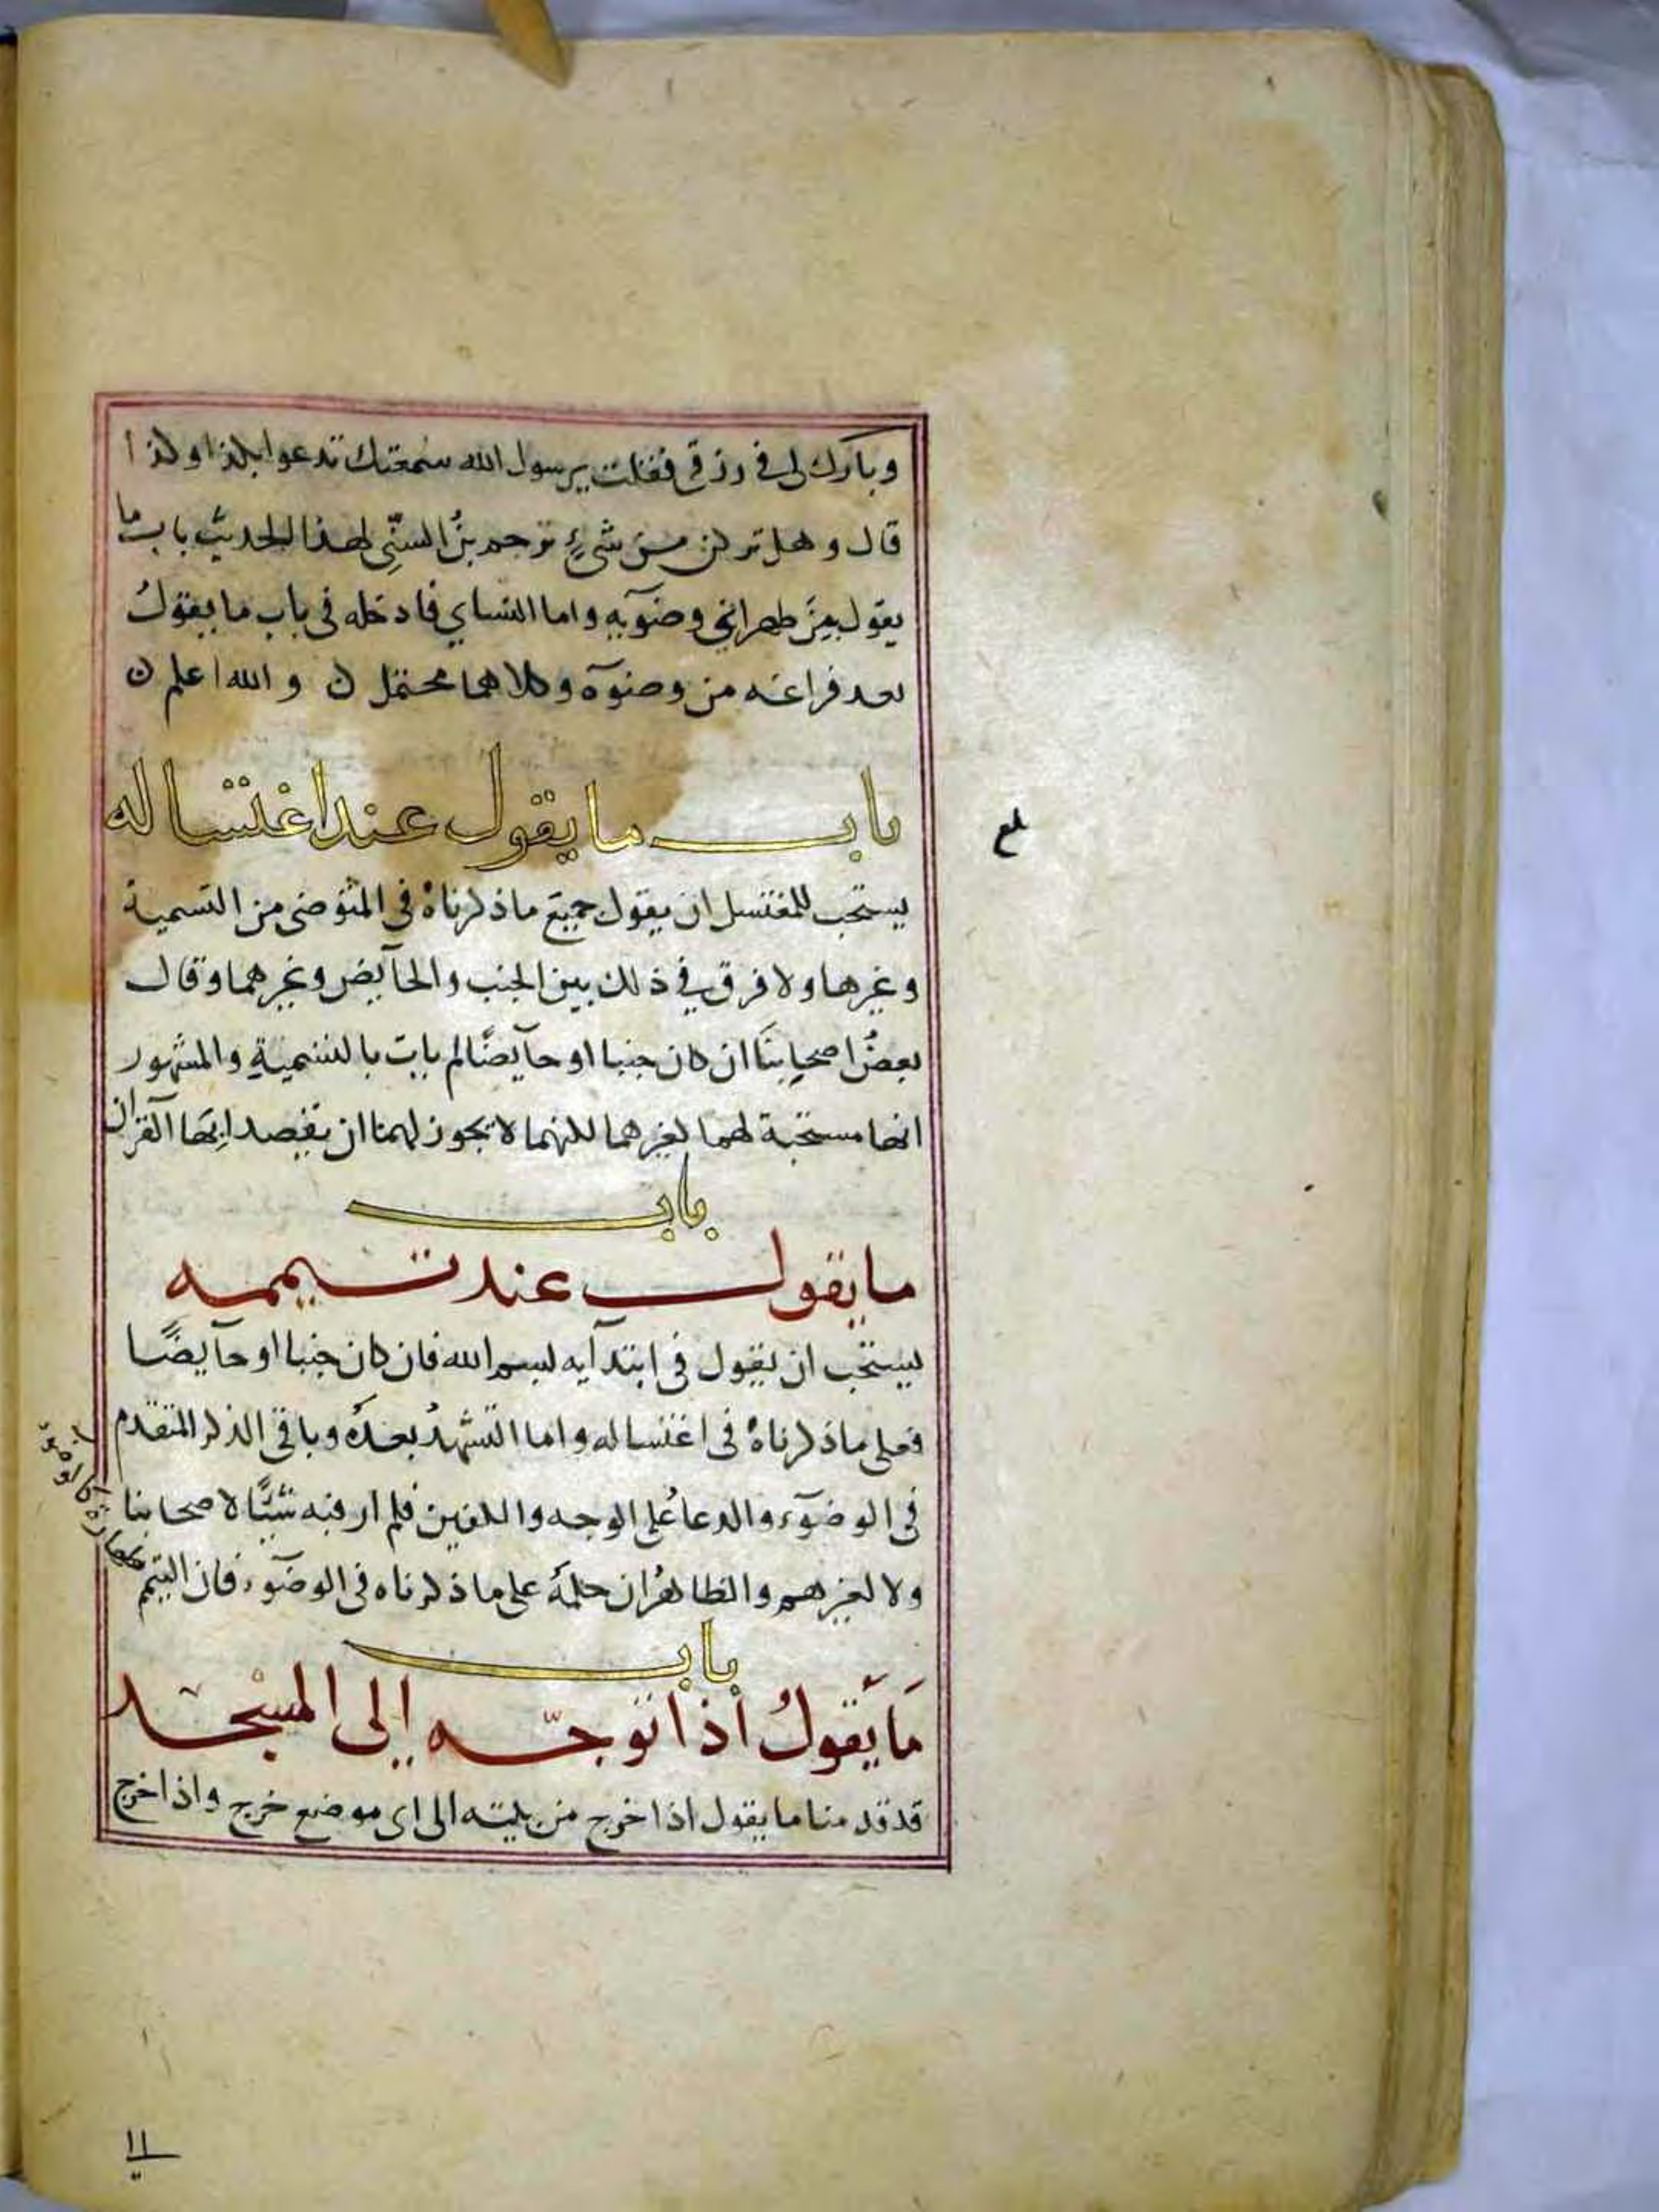 وبارك لى فى رزقى فقلت يرسول الله سمعتك تدعوا بكذا وكذا
قال وهل تركن من شىءٍ ترجم بنُ السنِّى لهذا الحديث باب ما
يقول بين ظهرانى وضوَٓيه واما النساى فادخله فى باب ما يقولُ
بعد فراغه من وضوٓه وكلاهما محتمل ن والله اعلم ن
باب ما يقول عند اغتساله
بلغ
يستحب للمغتسل ان يقول جميع ما ذكرناهُ فى المتوضى من التسمية
وغيرها ولا فرق فى ذلك بين الجنب والحآيض وغيرهما وقال
بعضُ اصحابنَا ان كان جنبا او حآيضًا لم يات بالتسميةِ والمشهور
انها مستحبة لهما كغيرهما لكنهما لا يجوز لهما ان يقصدا بِهَا القران
باب
ما يقول عند تيممه
يستحب ان يقول فى ابتدآيه بسم الله فان كان جنبا او حآيضًا
فعلى ما ذكرناهُ فى اغتساله واما التشهدُ بعدهُ وباقى الذكر المتقدم
فى الوضوٓء والدعاءُ على الوجه والكفين فلم ار فيه شيًّا لاصحابنا
ولا لغيرهم والظاهرُ ان حكمهُ على ما ذكرناه فى الوضوٓء فان التيم
طهارة كالوضوء
باب
مَا يَقولُ اذا توجّه إلى المسْجد
قد قدمنا ما يقول اذا خرج من بيته الى اى موضع خرج واذا خرج
١١